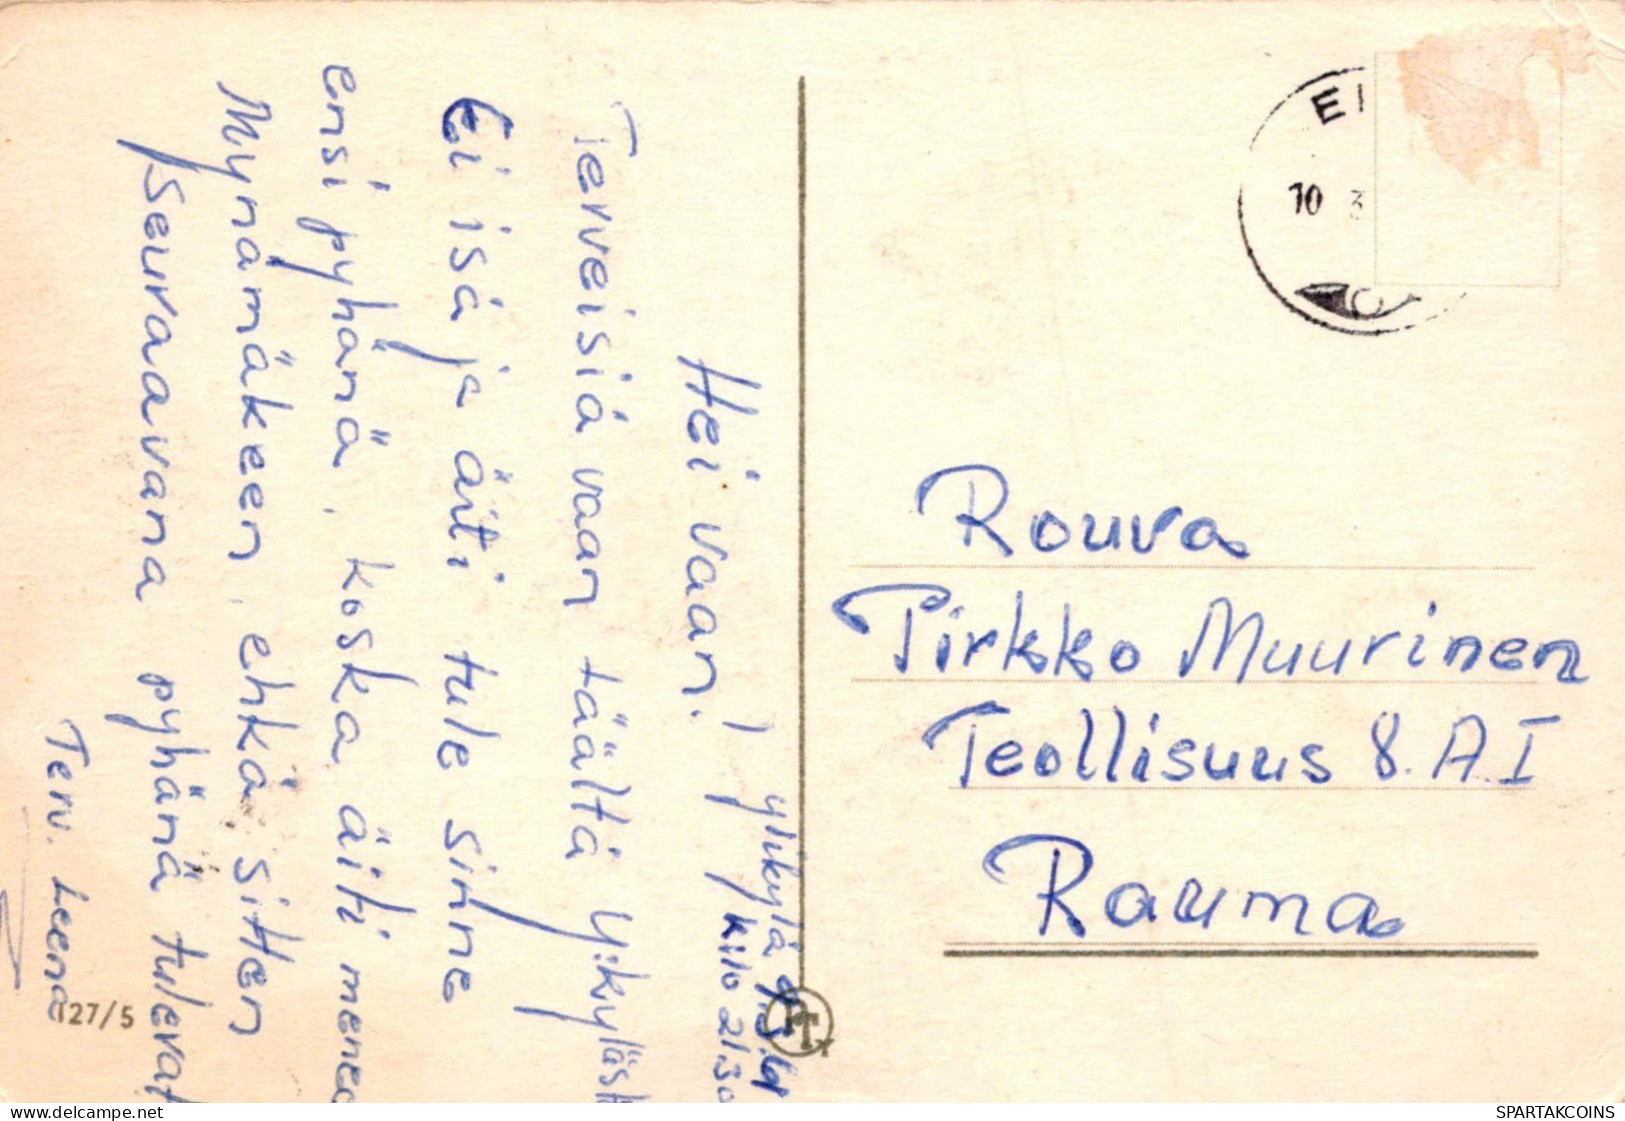 Ylikylä 9.3.61
klo 21.30
Hei vaan!
Terveisiä vaan täältä Ylikyläst
Ei isä ja äiti tule sinne
ensi pyhänä, koska äiti menee
Mynämäkeen, ehkä sitten
seuraavana pyhänä tulevat
Terv. Leena
127/5
EI
10 3
Rouva
Pirkko Muurinen
Teollisuus 8. A I
Rauma
www.delcampe.net
the.collector
SPARTAKCOINS